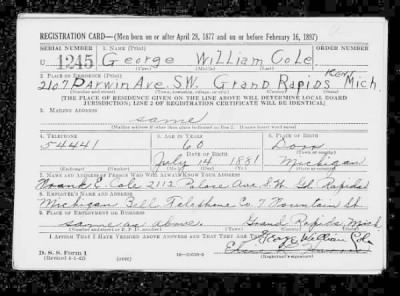 REGISTRATION CARD—(Men born on or after April 28, 1877 and on or before February 16, 1897)
SERIAL NUMBER 1. NAME (Print) ORDER NUMBER
U 1245 George William Cole
(First) (Middle) (Last)
2. PLACE OF RESIDENCE (Print)
Kent
2107 Darwin Ave. S.W. Grand Rapids Mich.
(Number and street) (Town, township, village, or city) (County) (State)
[THE PLACE OF RESIDENCE GIVEN ON THE LINE ABOVE WILL DETERMINE LOCAL BOARD
JURISDICTION; LINE 2 OF REGISTRATION CERTIFICATE WILL BE IDENTICAL]
3. MAILING ADDRESS
same
(Mailing address if other than place indicated on line 2. If same insert word same)
4. TELEPHONE 5. AGE IN YEARS 6. PLACE OF BIRTH
54441 60 Dorr
DATE OF BIRTH (Town or county)
July 14 1881 Michigan
(Exchange) (Number) (Mo.) (Day) (Yr.) (State or country)
7. NAME AND ADDRESS OF PERSON WHO WILL ALWAYS KNOW YOUR ADDRESS
Frank E. Cole 2112 Ave S.W. Gd. Rapids
8. EMPLOYER'S NAME AND ADDRESS
Michigan Bell Telephone Co. 7 Fountain St.
9. PLACE OF EMPLOYMENT OR BUSINESS
same as above. Grand Rapids Mich.
(Number and street or R. F. D. number) (Town) (County) (State)
I AFFIRM THAT I HAVE VERIFIED ABOVE ANSWERS AND THAT THEY ARE TRUE.
George William Cole
D. S. S. Form 1
(Revised 4-1-42) (over) (Registrant's signature)